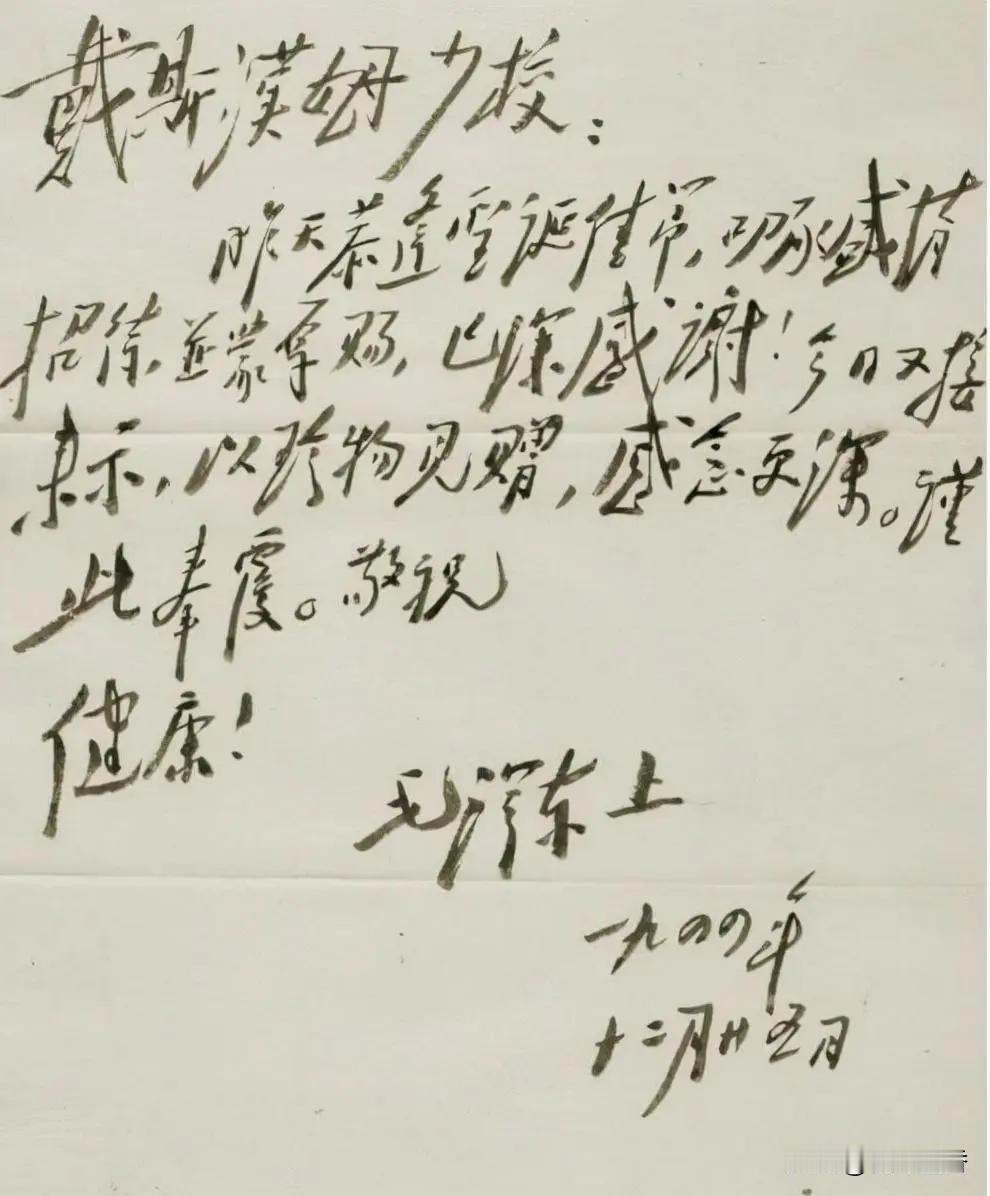 戴斯漢姆少校：
昨天恭逢聖誕佳节，叨承盛情
招待，並蒙厚赐，已深感谢！今日又接
柬示，以珍物见赠，感念更深。谨
此奉覆。敬祝
健康！
毛澤东上
一九四四年
十二月廿五日